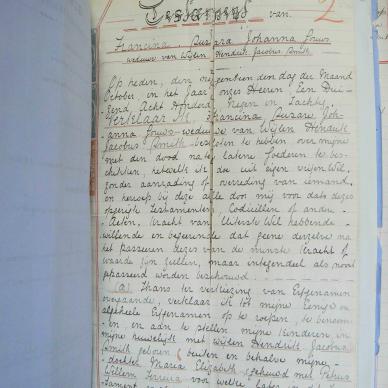 Testament van 2
Francina Suzara Johanna Fouws
weduwe van Wijlen Hendrik Jacobus Smith
Op heden, den negentienden dag der Maand
October in het Jaar onzes Heeren Een Dui-
zend, Acht Honderd Negen en Tachtig,
Verklaar Ik, Francina Suzara Joh-
anna Fouws weduwe van Wijlen Hendrik
Jacobus Smith besloten te hebben over mijne
met den dood na te latene Goederen te bes-
chikken, hetwelk ik doe uit eigen vrijen Wil,
zonder aanrading of overreding van iemand,
en herroep bij deze alle door mij voor dato dezes
opgerigte Testamenten, Codicillen of andere
Acten, kracht van Uiterste Wil hebbende
willende en begeerende dat geene derzelve na
het passeeren dezes van de minste kracht of
waarde zijn zullen, maar integendeel als nooit
gepasseerd worden beschouwd.
(a) Thans ter verkiezing van Erfgenamen
overgaande, verklaar ik tot mijne Eenige en
algeheele Erfgenamen op te roepen, te benoem-
en en aan te stellen mijne kinderen, in
mijne huwelijk met wijlen Hendrik Jacobus
Smith geboren, buiten en behalve mijne
dochter Maria Elizabeth gehuwd met Petrus
Willem Ferreira voor welke laten